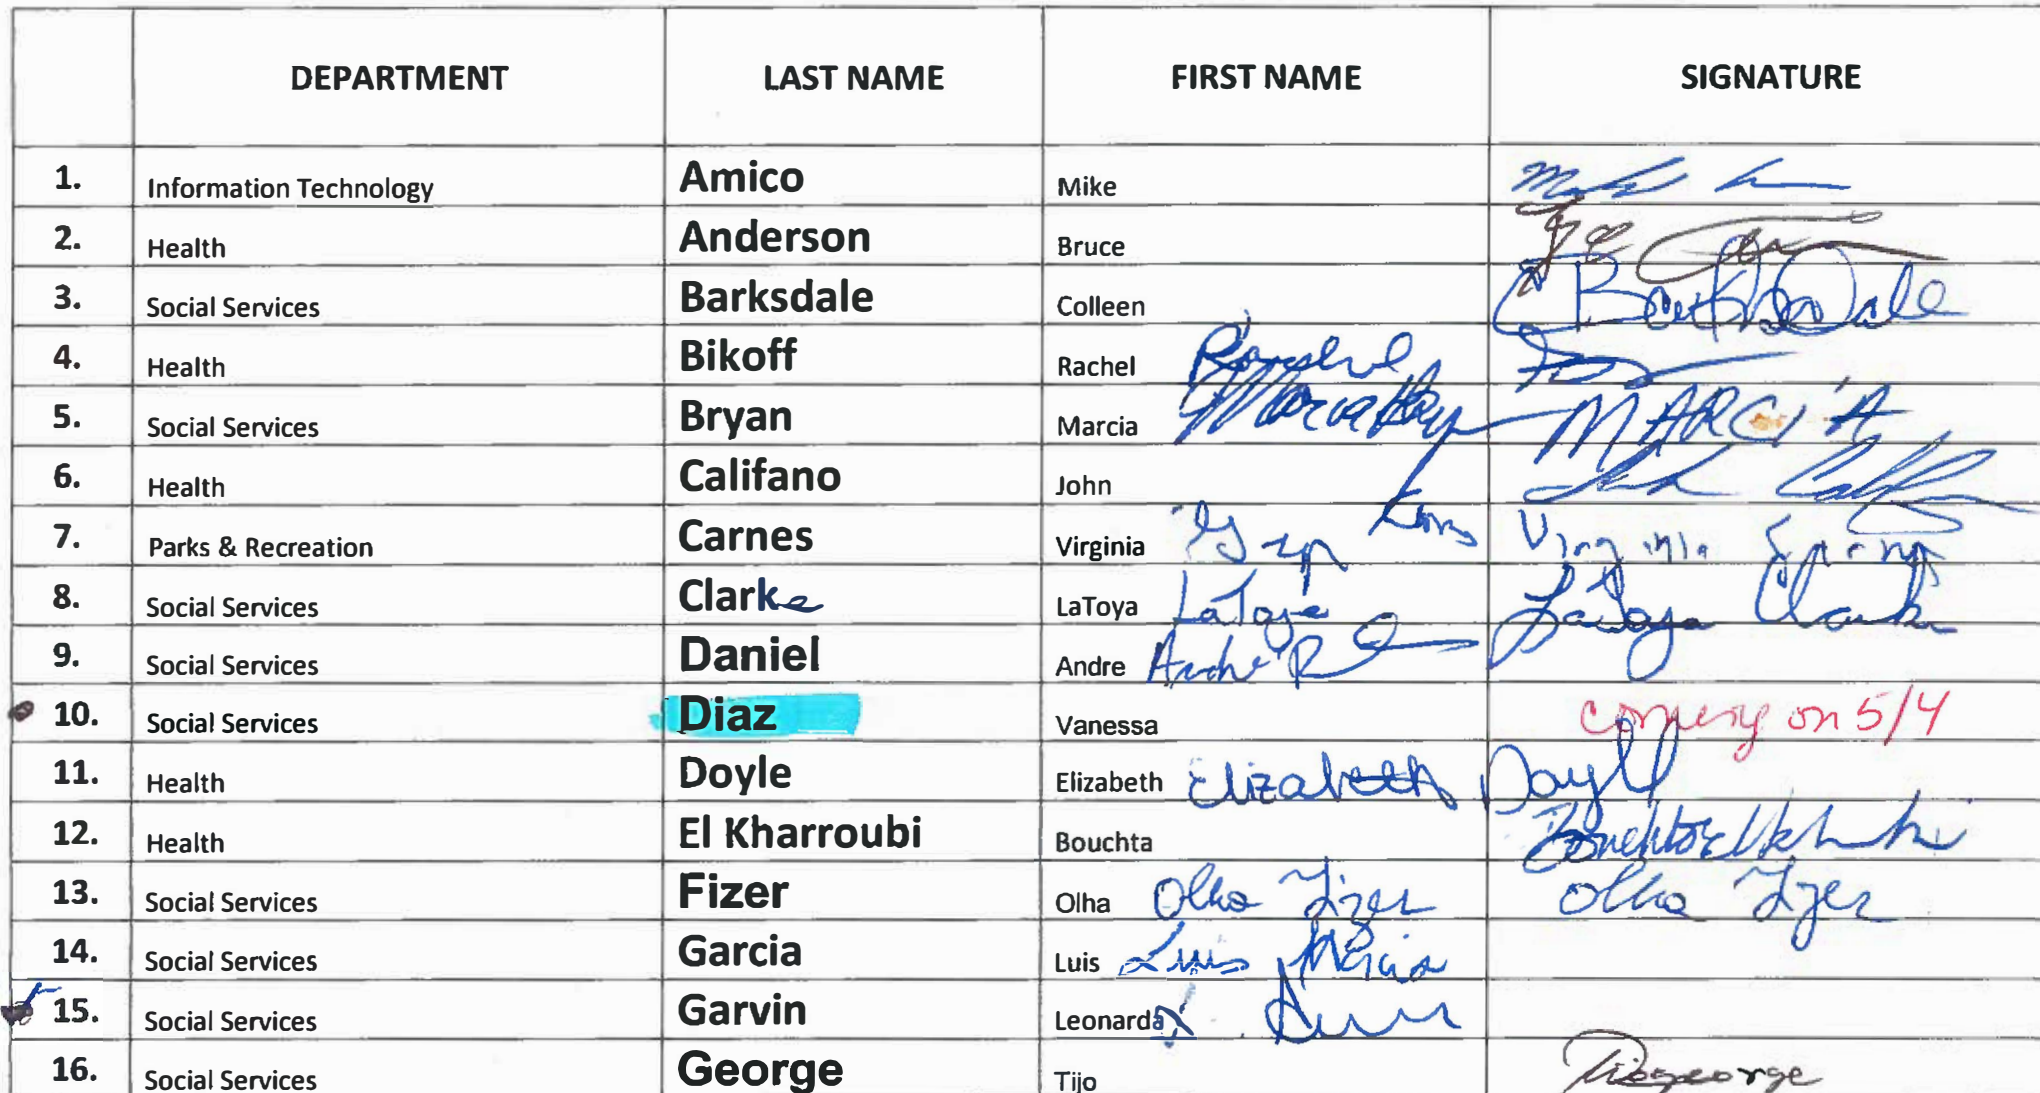 DEPARTMENT LAST NAME FIRST NAME SIGNATURE
1. Information Technology Amico Mike
2. Health Anderson Bruce
3. Social Services Barksdale Colleen C Barksdale
4. Health Bikoff Rachel
5. Social Services Bryan Marcia Marcia Bryan MARCIA
6. Health Califano John
7. Parks & Recreation Carnes Virginia Virginia
8. Social Services Clarke LaToya LaToya LaToya Clarke
9. Social Services Daniel Andre Andre
10. Social Services Diaz Vanessa coming on 5/4
11. Health Doyle Elizabeth Elizabeth Doyle
12. Health El Kharroubi Bouchta
13. Social Services Fizer Olha Olha Fizer Olha Fizer
14. Social Services Garcia Luis Luis Garcia
15. Social Services Garvin Leonarda
16. Social Services George Tijo Tijo george